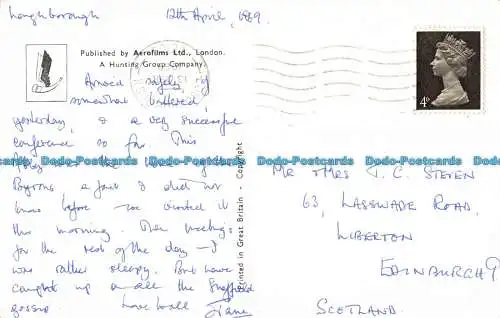 Loughborough 12th April, 1969.
Published by Aerofilms Ltd., London.
A Hunting Group Company.
Arrived safely if
somewhat battered,
yesterday, & a very successful
conference so far. This
was the
Byrons a fact I did not
know before - we visited it
this morning. Then meetings
for the rest of the day - I
was rather sleepy. But have
caught up on all the Sheffield
gossip Love to all Jane
Printed in Great Britain - Copyright
4D
MR & MRS T. C. STEVEN
63, LASSWADE ROAD,
LIBERTON
EDINBURGH 9
SCOTLAND.
Dodo-Postcards Dodo-Postcards Dodo-Postcards Dodo-Postcards Dodo-Postcards